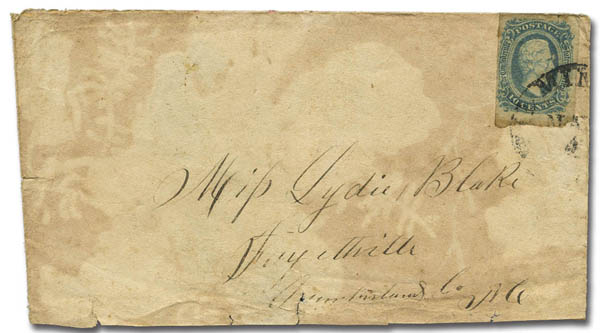 POSTAGE
10 CENTS
MIN
MA
4
Miss Lydie Blake
Fayettville
Cumberland Co, NC